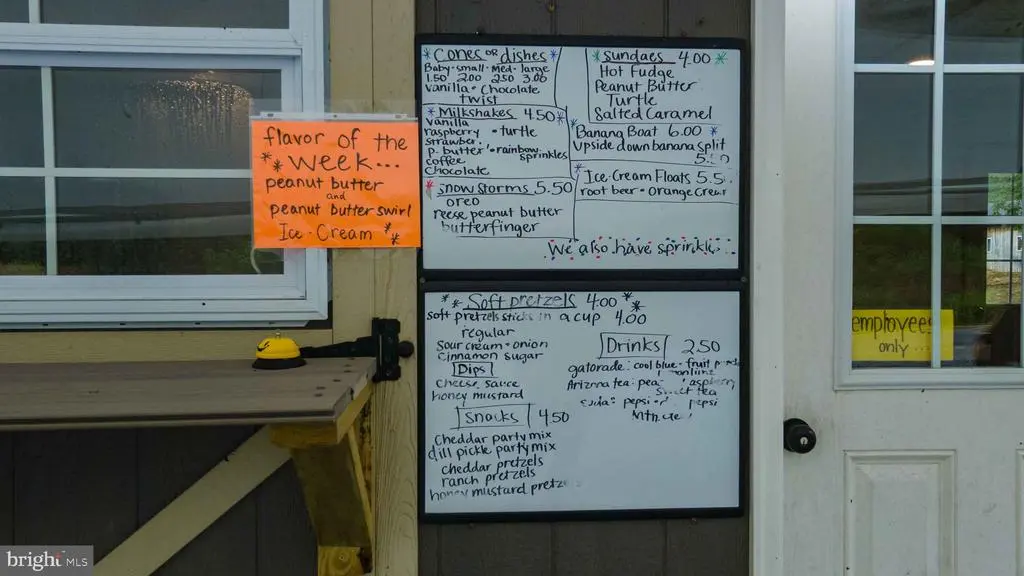 flavor of the
* WEEK... *
peanut butter
and
peanut butter swirl
Ice Cream
* Cones or dishes *
Baby small Med large
1.50 2.00 2.50 3.00
vanilla • Chocolate
twist
* Milkshakes 4.50 *
vanilla
raspberry • turtle
strawber.
p. butter • rainbow
sprinkles
coffee
Chocolate
* Snow Storms 5.50
oreo
reese peanut butter
butterfinger
* Sundaes 4.00 *
Hot Fudge
Peanut Butter
Turtle
Salted Caramel
* Banana Boat 6.00 *
Upside down banana Split
* Ice Cream Floats 5.5
root beer • orange crear
We also have sprinkle
** Soft pretzels 4.00 **
soft pretzels sticks in a cup 4.00
regular
Sour cream • onion
Cinnamon sugar
Dips
cheese sauce
honey mustard
Snacks 4.50
Cheddar party mix
dill pickle party mix
cheddar pretzels
ranch pretzels
honey mustard pretz
Drinks 2.50
gatorade: cool blue • fruit
Arizona tea:
tea
pepsi pepsi
employees
only...
bright MLS